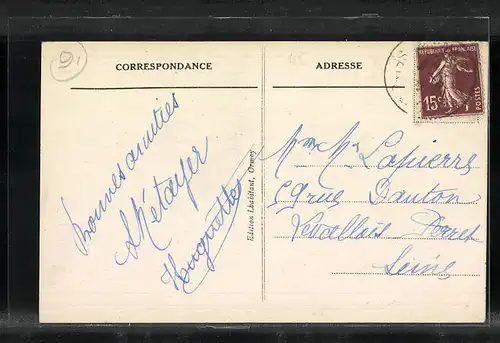 91
CORRESPONDANCE
Bonnes amitiés
Métayer
Huguette
Edition Lhabitant, Ormoy
ADRESSE
REPUBLIQUE FRANÇAISE
15c
POSTES
Lapierre
rue Danton
Levallois Perret
Seine